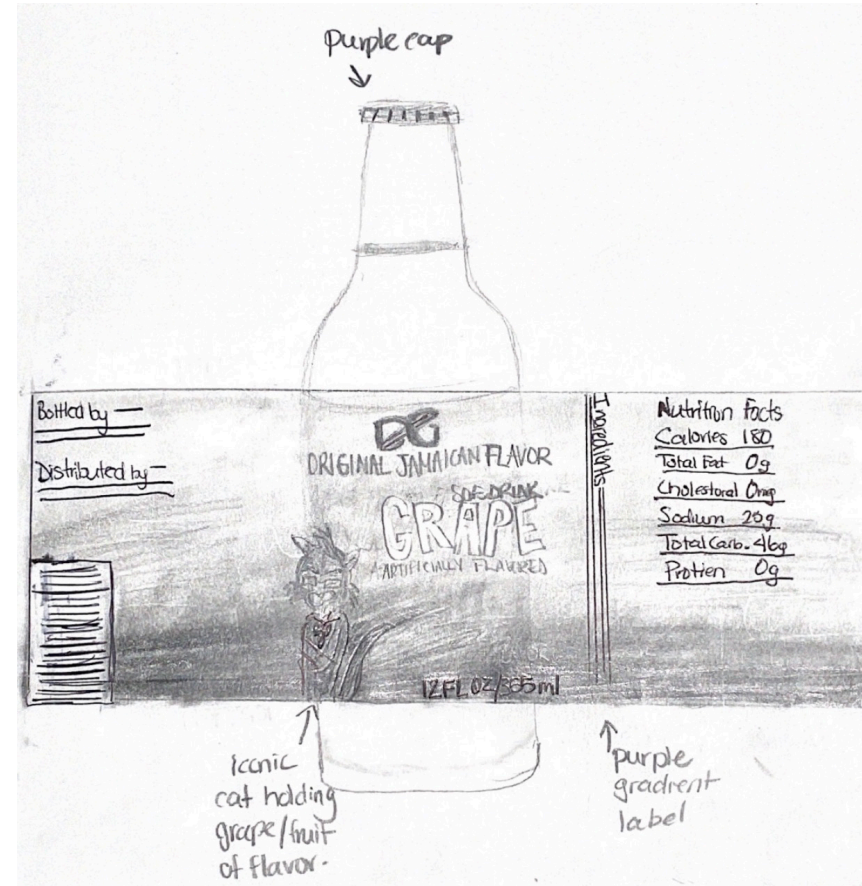 Purple cap
Bottled by —
Distributed by —
DG
ORIGINAL JAMAICAN FLAVOR
DRINK
GRAPE
ARTIFICIALLY FLAVORED
12FL OZ/355ml
Ingredients
Nutrition Facts
Calories 180
Total Fat 0g
Cholestoral 0mg
Sodium 25g
Total Carb. 46g
Protien 0g
Iconic
cat holding
grape/fruit
of flavor.
purple
gradient
label